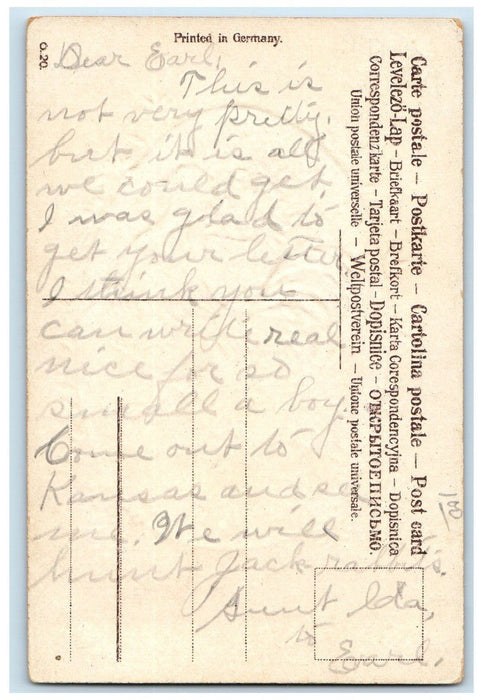 Printed in Germany.
O.20.
Dear Earl,
This is
not very pretty,
but it is all
we could get
I was glad to
get your letter
I think you
can write real
nice for so
small a boy.
Come out to
Kansas and see
me. We will
hunt Jack rabbits.
Aunt Ida,
to
Earl.
Carte postale — Postkarte — Cartolina postale — Post card
Levelező-Lap – Briefkaart – Brefkort – Karta Corespondencyjna – Dopisnica
Correspondenzkarte – Tarjeta postal – Dopisnice – ОТКРЫТОЕ ПИСЬМО.
Union postale universelle — Weltpostverein — Unione postale universale.
100